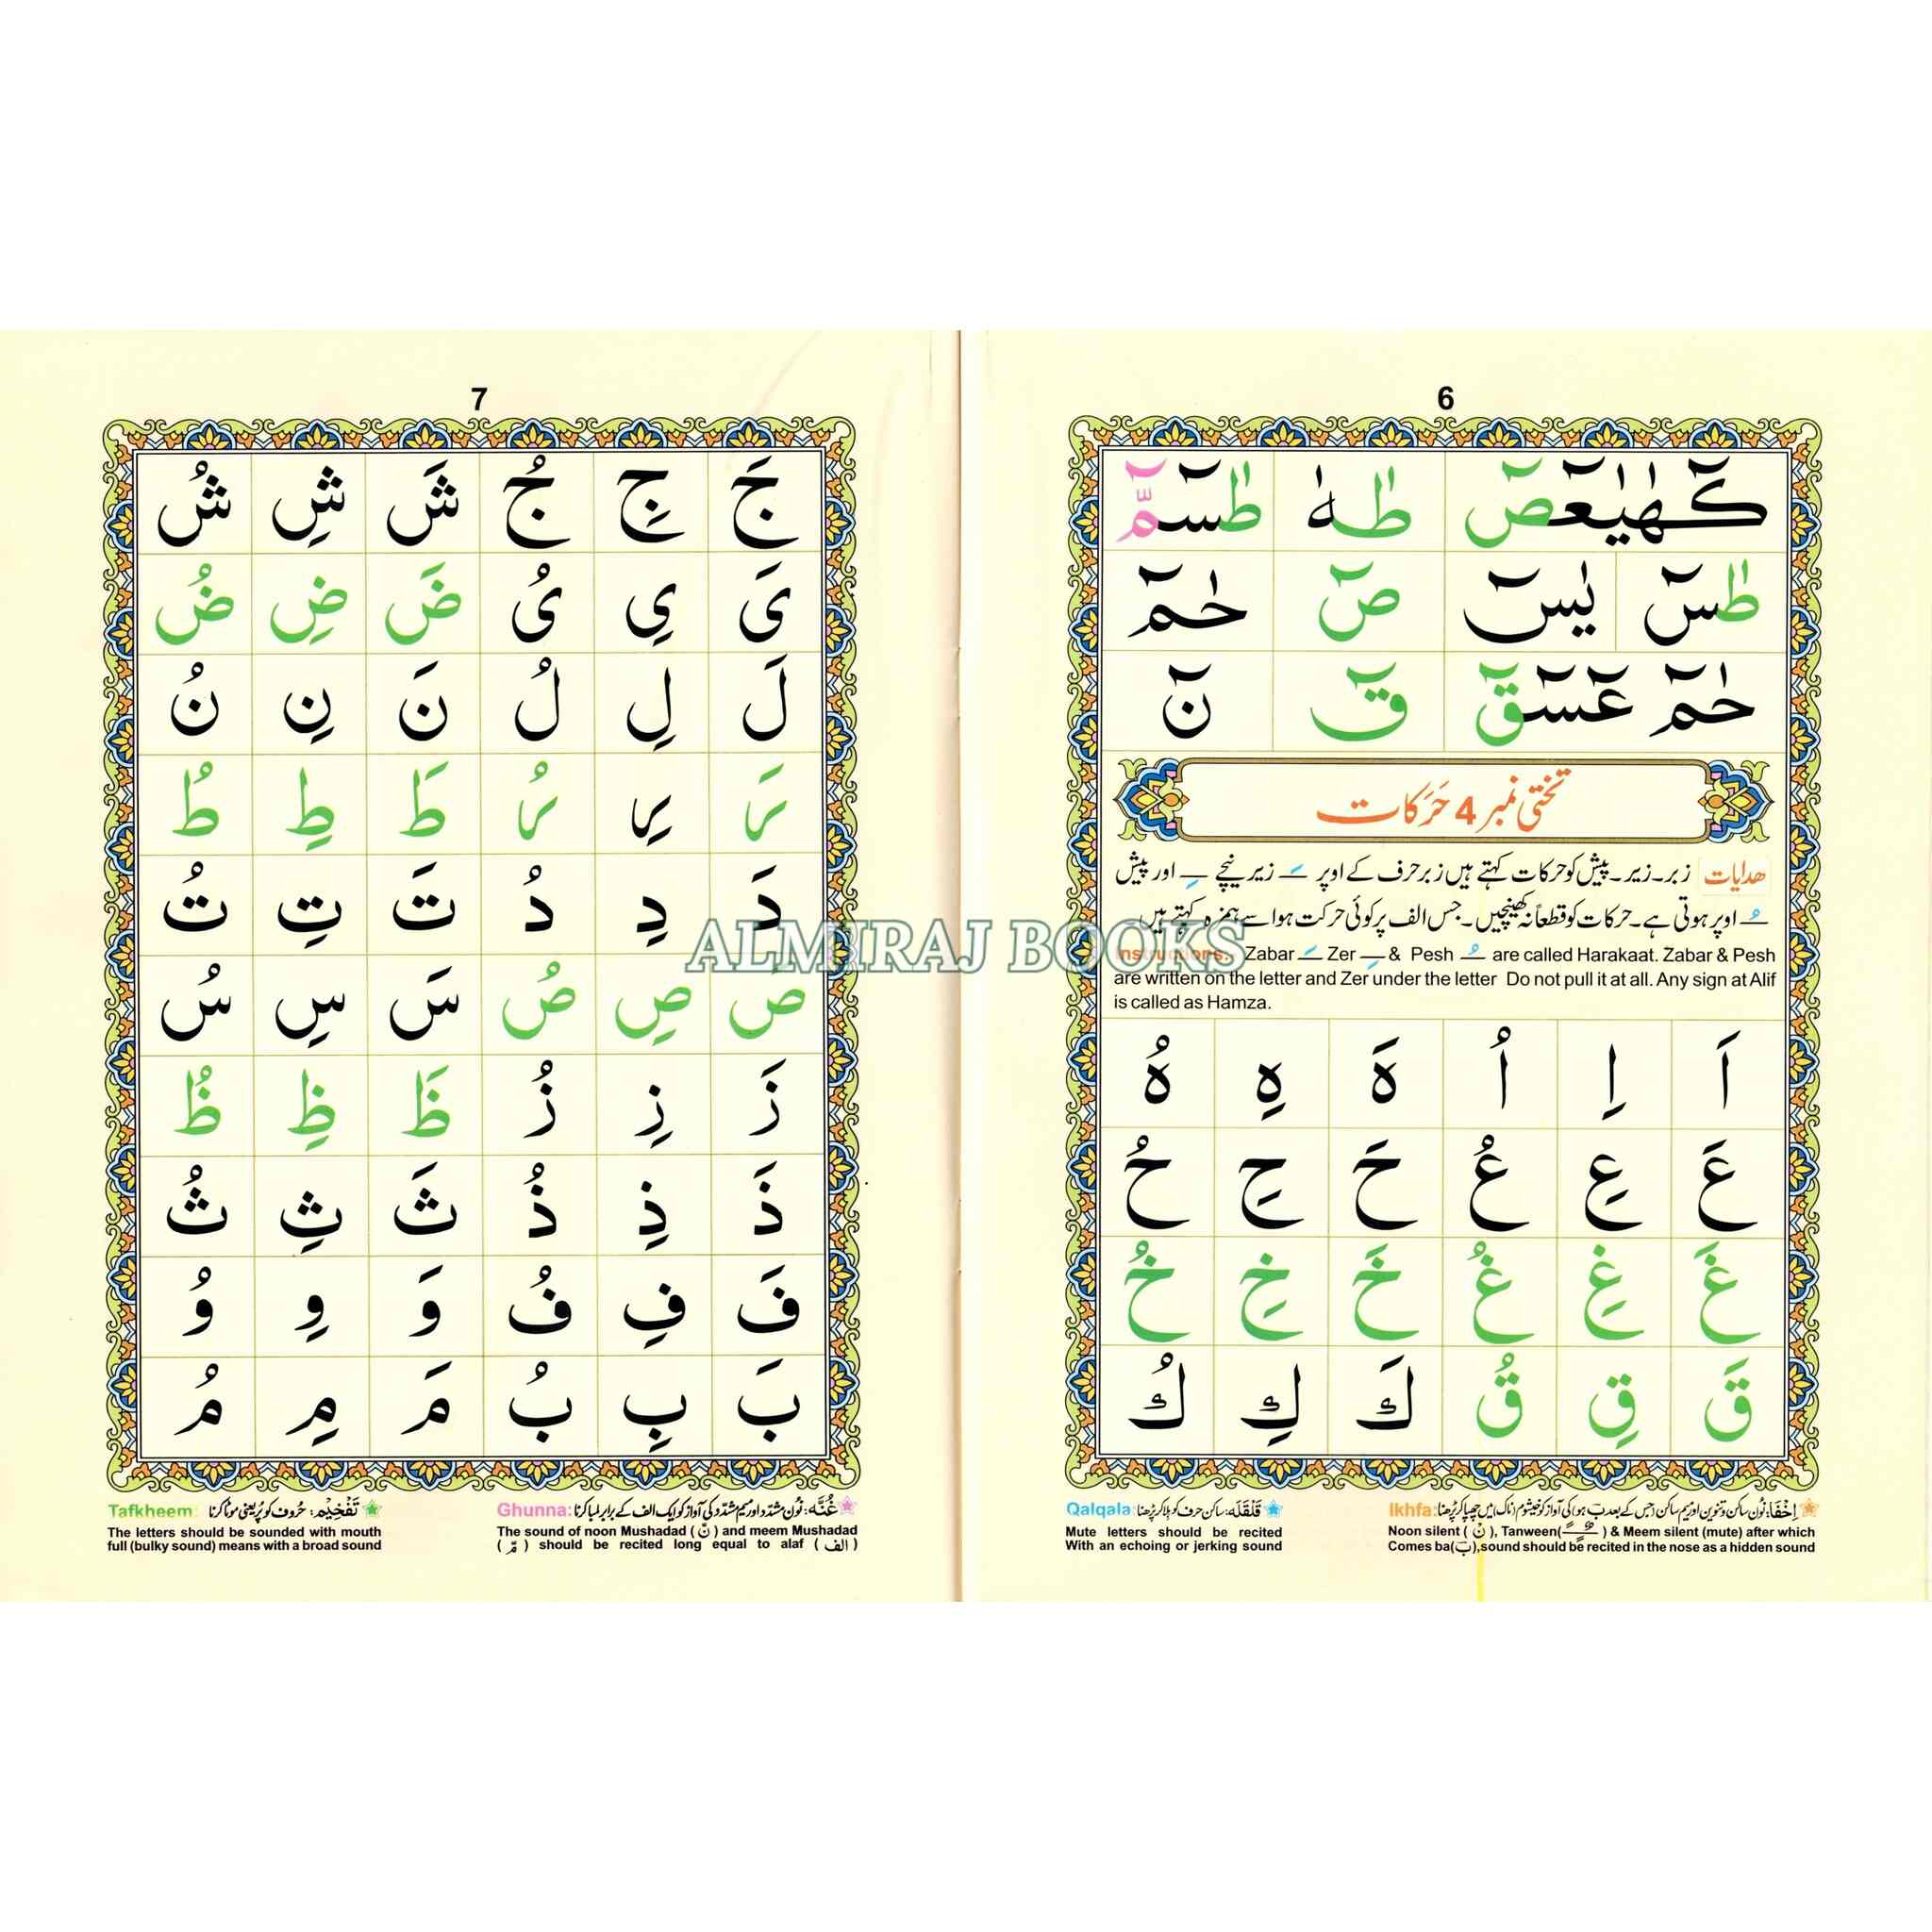 6
كٓهٰيٰعٓصٓ طٰهٰ طٰسٓمّٓ
طٰسٓ يٰسٓ صٓ حٰمٓ
حٰمٓ عٓسٓقٓ قٓ نٓ
تختی نمبر 4 حَرَکات
ھدایات زبر۔زیر۔پیش کو حرکات کہتے ہیں زبر حرف کے اوپر ـَ زیر نیچے ـِ اور پیش
ـُ اوپر ہوتی ہے۔حرکات کو قطعاً نہ کھینچیں۔جس الف پر کوئی حرکت ہو اسے ہمزہ کہتے ہیں
Instructions: Zabar ـَ Zer ـِ & Pesh ـُ are called Harakaat. Zabar & Pesh
are written on the letter and Zer under the letter Do not pull it at all. Any sign at Alif
is called as Hamza.
اَ اِ اُ هَ هِ هُ
عَ عِ عُ حَ حِ حُ
غَ غِ غُ خَ خِ خُ
قَ قِ قُ كَ كِ كُ
Ikhfa: اِخْفَا: نُون ساکن و تنوین اور میم ساکن (جس کے بعد ب ہو) کی آواز کو خیشوم (ناک) میں چھپا کر پڑھنا
Noon silent ( نْ ), Tanween( ـًـٍـٌ ) & Meem silent (mute) after which
Comes ba(ب),sound should be recited in the nose as a hidden sound
Qalqala: قَلْقَلَه: ساکن حرف کو ہلا کر پڑھنا
Mute letters should be recited
With an echoing or jerking sound
7
جَ جِ جُ شَ شِ شُ
یَ یِ یُ ضَ ضِ ضُ
لَ لِ لُ نَ نِ نُ
رَ رِ رُ طَ طِ طُ
دَ دِ دُ تَ تِ تُ
صَ صِ صُ سَ سِ سُ
زَ زِ زُ ظَ ظِ ظُ
ذَ ذِ ذُ ثَ ثِ ثُ
فَ فِ فُ وَ وِ وُ
بَ بِ بُ مَ مِ مُ
Ghunna: غُنَّه: نُون مشدّد اور میم مشدّد کی آواز کو ایک الف کے برابر لمبا کرنا
The sound of noon Mushadad ( نّ ) and meem Mushadad
( مّ ) should be recited long equal to alaf ( الف )
Tafkheem: تَفْخِیْم: حُروف کو پُر یعنی موٹا کرنا
The letters should be sounded with mouth
full (bulky sound) means with a broad sound
ALMIRAJ BOOKS